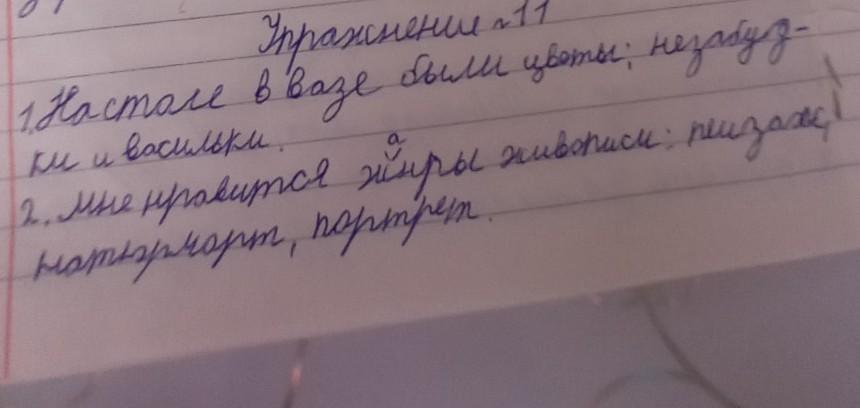 Упражнение №11
1. На столе в вазе были цветы; незабуд-
ки и васильки.
2. Мне нравится жанры живописи: пеизаж,
натюрморт, портрет.